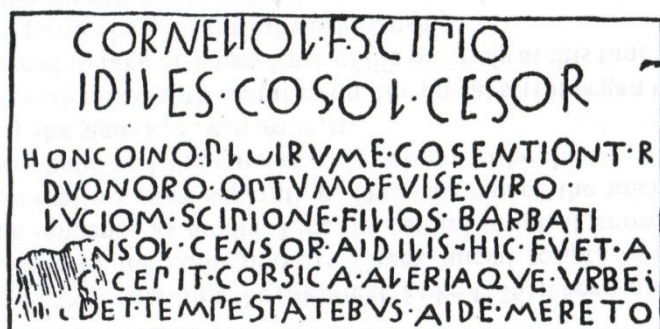 CORNELIO L·F·SCIPIO
IDILES·COSOL·CESOR
HONC OINO:PLOIRVME·COSENTIONT·R
DVONORO·OPTVMO·FVISE·VIRO·
LVCIOM·SCIPIONE·FILIOS·BARBATI
NSOL·CENSOR·AIDILIS·HIC·FVET·A
CEPIT·CORSICA·ALERIAQVE·VRBE
DET·TEMPESTATEBVS·AIDE·MERETO